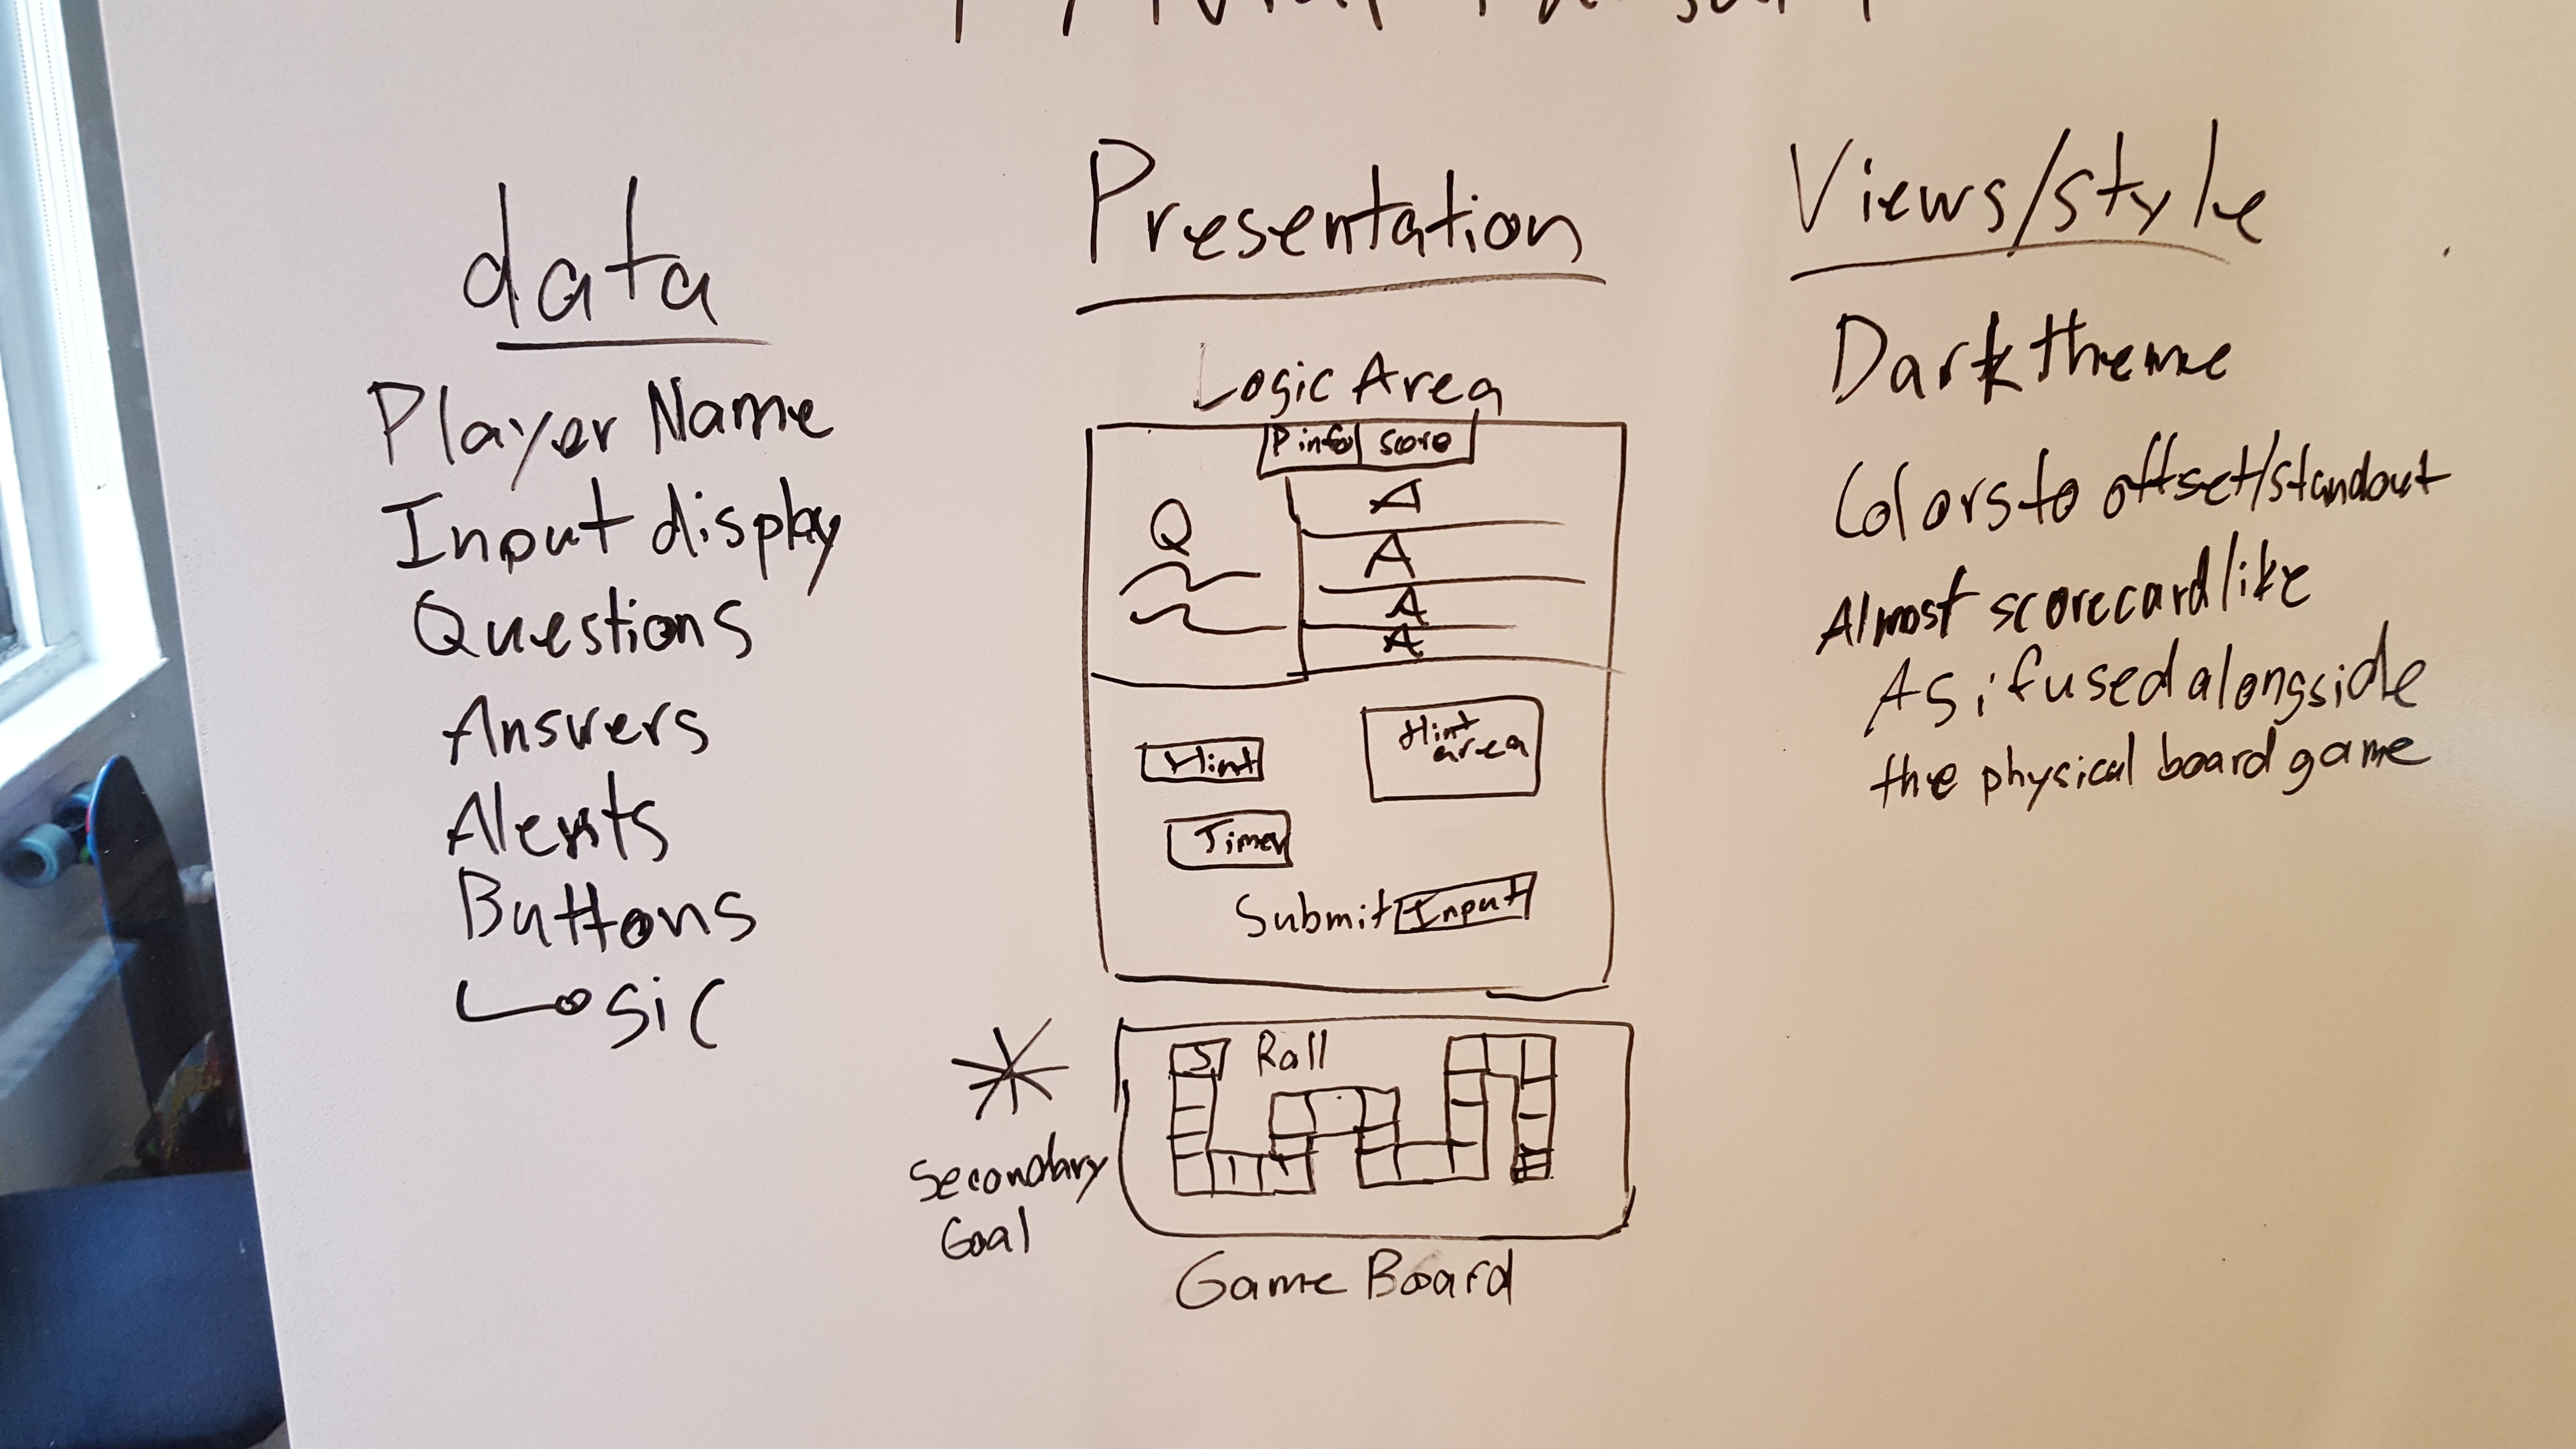 data
Player Name
Input display
Questions
Answers
Alerts
Buttons
Logic
Presentation
Logic Area
P info score
Q
A
A
A
A
Hint
Hint
area
Timer
Submit Input
S Roll
Secondary
Goal
Game Board
Views/style
Dark theme
Colors to offset/standout
Almost scorecard like
As if used alongside
the physical board game